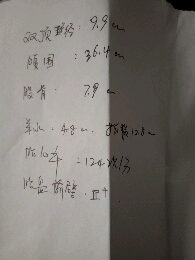 双顶径：9.9cm
颅围：36.4cm
股骨：7.9cm
羊水：4.8cm，指数12.8cm
胎心率：124次/分
胎盘前壁，II+